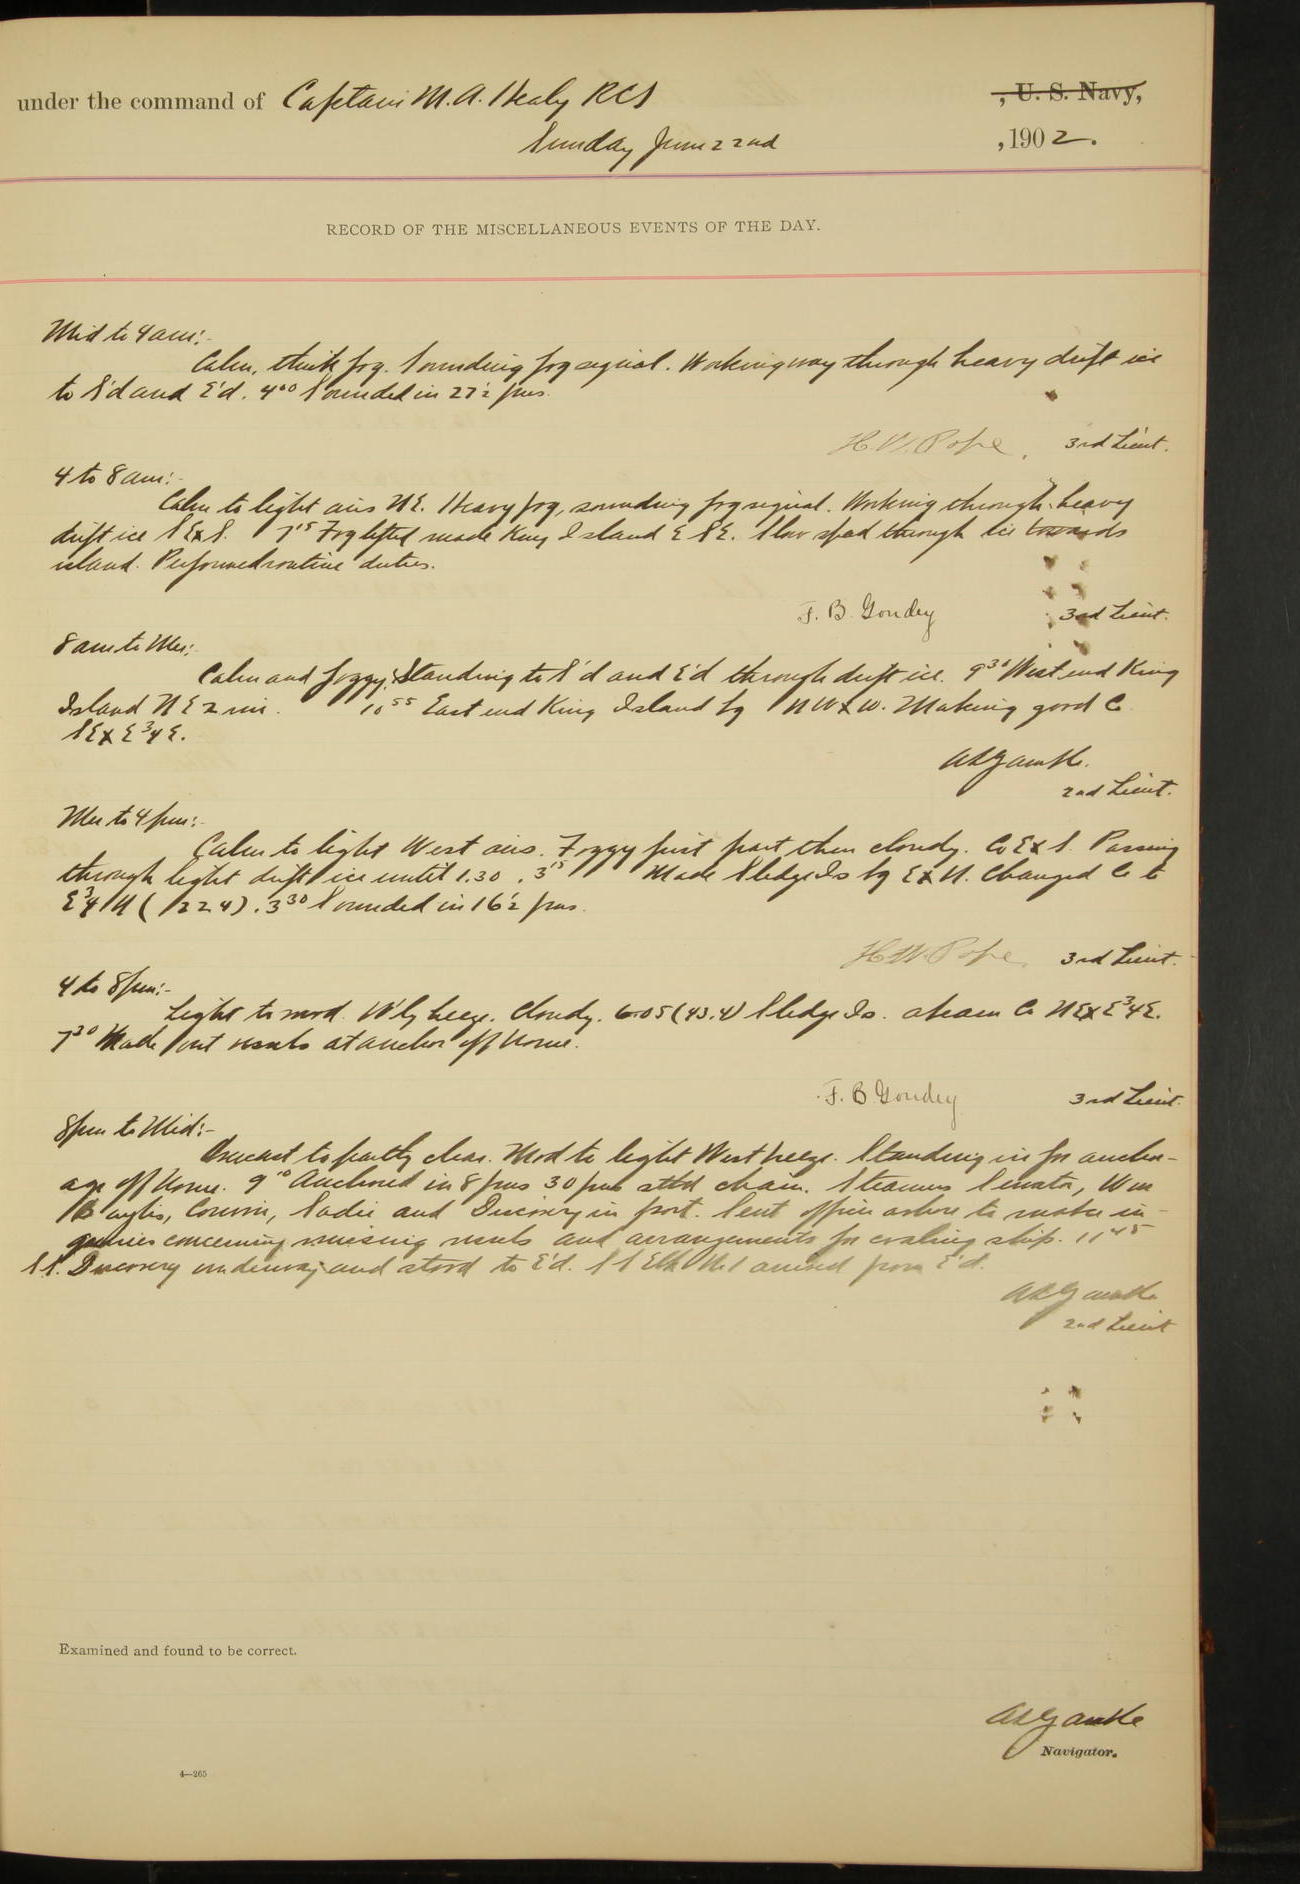 under the command of Captain M. A. Healy RCS , U. S. Navy,
Sunday June 22nd , 1902.
RECORD OF THE MISCELLANEOUS EVENTS OF THE DAY.
Mid to 4 am:-
Calm, thick fog. Sounding fog signal. Working way through heavy drift ice
to S'd and E'd. 4⁰⁰ Sounded in 27½ fms.
H. W. Pope, 3rd Lieut.
4 to 8 am:-
Calm to light airs NE. Heavy fog, sounding fog signal. Working through heavy
drift ice SExS. 7¹⁵ Fog lifted made King Island E SE. Slow speed through ice towards
island. Performed routine duties.
F. B. Goudey 3rd Lieut.
8 am to Mer:-
Calm and foggy. Standing to S'd and E'd through drift ice. 9³⁰ West end King
Island NE 2 mi. 10⁵⁵ East end King Island bg NWxW. Making good C
SExE¾E.
A L Gamble.
2nd Lieut.
Mer to 4 pm:-
Calm to light West airs. Foggy first part then cloudy. Co ExS. Passing
through light drift ice until 1.30. 3¹⁵ Made Sledge Is bg ExN. Changed Co to
E¾N (22 4). 3³⁰ Sounded in 16½ fms.
H. W. Pope, 3rd Lieut.
4 to 8 pm:-
Light to mod. W'ly breeze. Cloudy. 6.05 (43.4) Sledge Is. abeam Co NExE¾E.
7³⁰ Made out vessels at anchor off Nome.
F. B Goudey 3rd Lieut.
8 pm to Mid:-
Overcast to partly clear. Mod to light West breeze. Standing in for anchor-
age off Nome. 9¹⁰ Anchored in 8 fms 30 fms stbd chain. Steamers Senator, Wm
Baylis, Corwin, Sadie and Discovery in port. Sent officer ashore to make in-
quiries concerning missing vessels and arrangements for coaling ship. 11⁴⁵
SS. Discovery underway and stood to E'd. SS Elk No 1 arrived from E'd.
A L Gamble
2nd Lieut
Examined and found to be correct.
A L Gamble
Navigator.
4—265